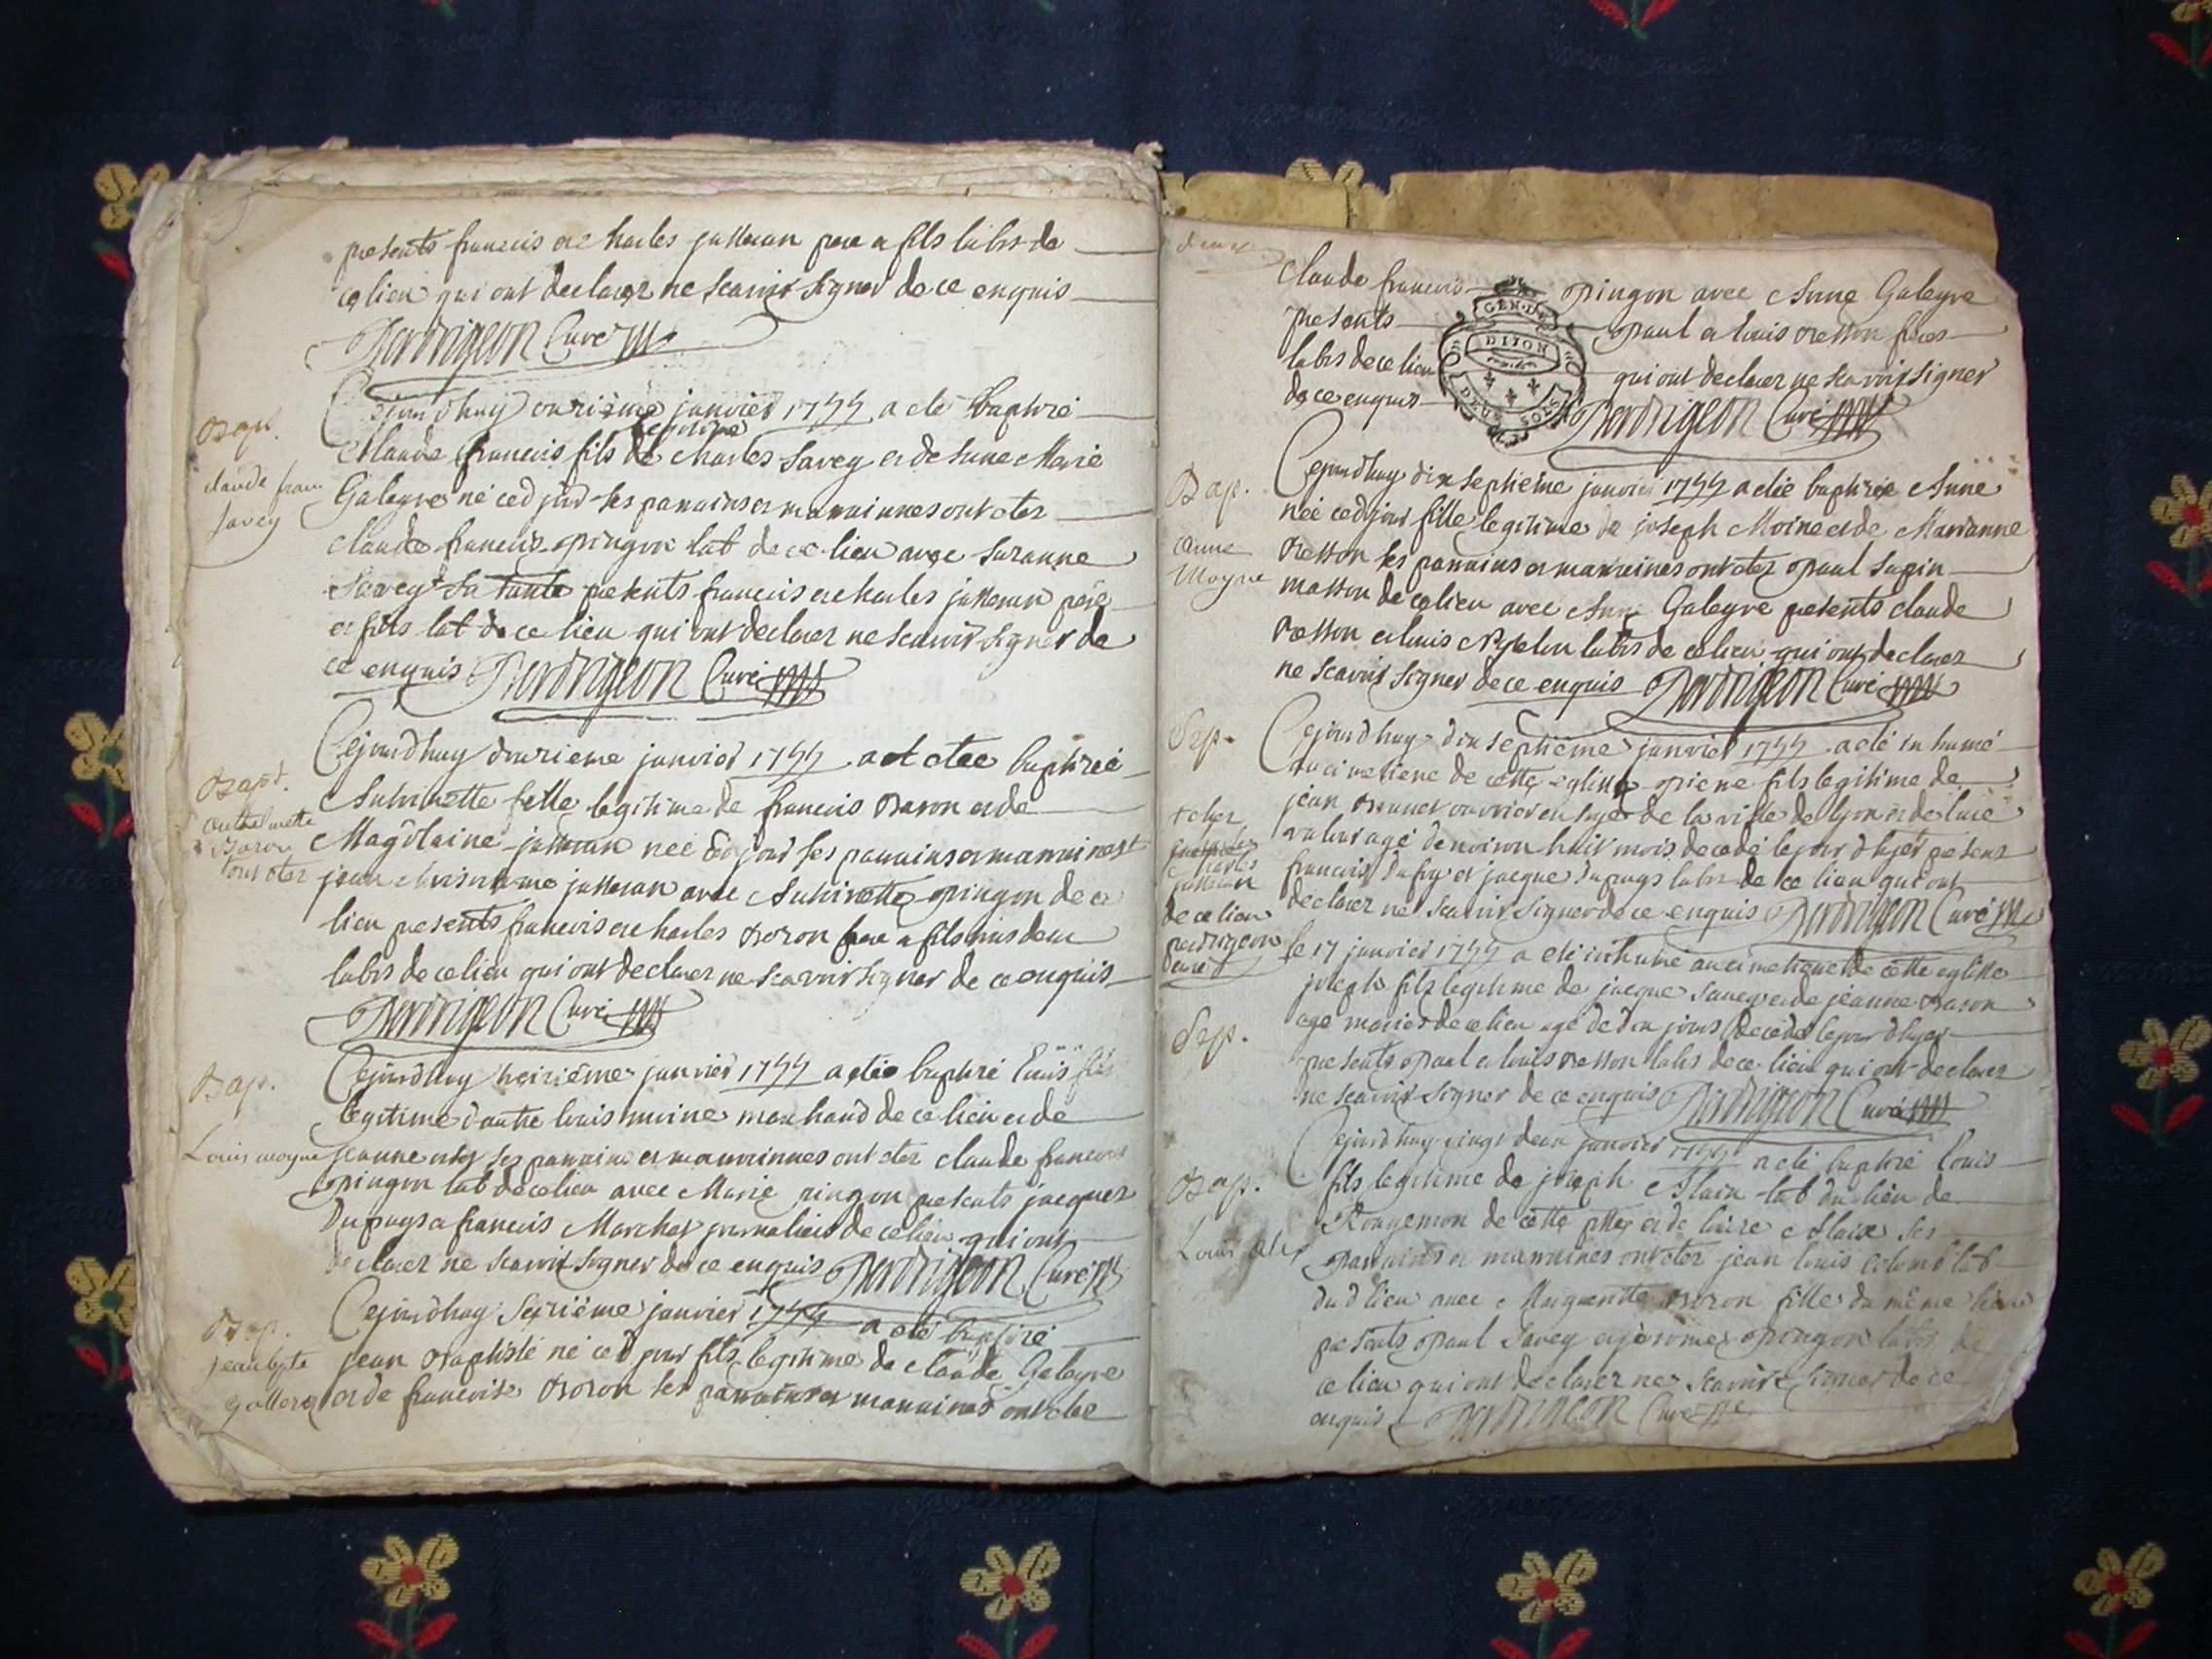 presents francois et charles jusseran pere et fils labrs de
ce lieu qui ont declarez ne scavoir signer de ce enquis
Perdrigeon Curé
Bap.
claude fran
savey
Cejourdhuy onzieme janvier 1744 a eté baptizé
legitime
Claude francois fils de charles Savey et de Anne Marie
Galeyre né ced jour ses parrains et marrainnes ont etez
claude francois pingon lab de ce lieu avec Suzanne
Savey sa tante presents francois et charles jusseran pere
et fils lab de ce lieu qui ont declarez ne scavoir signer de
ce enquis Perdrigeon Curé
Bapt.
anthelmette
Baron
ont etez
Cejourdhuy douzieme janvier 1744 a eteé baptizeé
fille legitime de francois Baron et de
Magdelaine jusseran neé ced jour ses parrains et marraines
jean jusseran avec pingon de ce
lieu presents francois et charles Boron pere et fils
labrs de ce lieu qui ont declarez ne scavoir signer de ce enquis
Perdrigeon Curé
Bap.
Louis moyne
Cejourdhuy treizième janvier 1744 a eté baptizé Louis fils
legitime d'autre louis moine marchand de ce lieu et de
jeanne ses parrains et marrainnes ont etez claude francois
pingon lab de ce lieu avec Marie pingon presents jacques
Dupuys et francois Marchat journaliers de ce lieu qui ont
declarez ne scavoir signer de ce enquis Perdrigeon Curé
Bap.
jean bpte
Gallere
Cejourdhuy seizième janvier 1744 a eté baptizé
jean Baptiste né ced jour fils legitime de claude Galeyre
et de francoise Boron ses parrains et marraines ont etez
claude francois pingon avec Anne Galeyre
presents paul et louis Besson freres
labrs de ce lieu qui ont declarez ne scavoir signer
de ce enquis Perdrigeon Curé
GEN. DE
DIJON
DEUX SOLS
Bap.
anne
Moyne
Cejourdhuy dix septième janvier 1744 a eteé baptizeé Anne
neé ced jour fille legitime de joseph Moine et de Marianne
Besson ses parrains et marraines ont etez paul Sapin
masson de ce lieu avec Anne Galeyre presents claude
Besson et louis labrs de ce lieu qui ont declarez
ne scavoir signer de ce enquis Perdrigeon Curé
Sep.
Cejourdhuy dix septième janvier 1744 a eté inhumé
au cimetiere de cette eglisse piere fils legitime de
jean Brunet ouvrier en soye de la ville de lyon et de
agé d'environ huit mois decedé le jour d'hyer presens
francois Dufuy et jacque Dupuys labrs de ce lieu qui ont
declarez ne scavoir signer de ce enquis Perdrigeon Curé
charles
jusseran
de ce lieu
perdrigeon
curé
Sep.
le 17 janvier 1744 a eté inhumé au cimetiere de cette eglisse
joseph fils legitime de jacque Savey et de jeanne Baron
mariés de ce lieu agé de dix jours decedé le jour d'hyer
presents paul et louis Besson labrs de ce lieu qui ont declarez
ne scavoir signer de ce enquis Perdrigeon Curé
Bap.
Louis
Cejourdhuy vingt deux janvier 1744 a eté baptizé louis
fils legitime de joseph lab du lieu de
Rougemon de cette psse et de ses
parrains et marraines ont etez jean louis lab
dud lieu avec Margueritte Boron fille du même lieu
presents paul Savey et jerome pingon labrs de
ce lieu qui ont declarez ne scavoir signer de ce
enquis Perdrigeon Curé